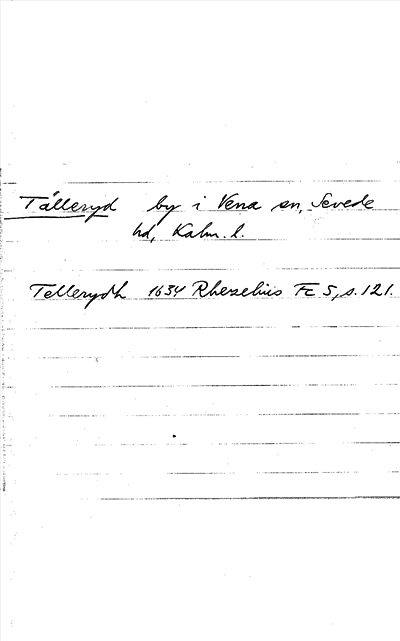 Tålleryd by i Vena sn, Sevede
hd, Kalm. l.
Tellerydh 1634 Rhezelius Fc 5, s. 121.